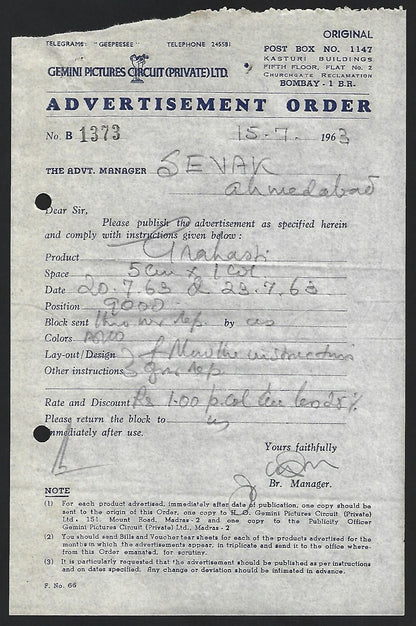 ORIGINAL
TELEGRAMS: "GEEPEESEE" TELEPHONE 245581
POST BOX NO. 1147
KASTURI BUILDINGS
FIFTH FLOOR, FLAT No. 2
CHURCHGATE RECLAMATION
BOMBAY - 1 B.R.
GEMINI PICTURES CIRCUIT (PRIVATE) LTD.
ADVERTISEMENT ORDER
No. B 1373 15-7. 1963
THE ADVT. MANAGER SEVAK
Ahmedabad
Dear Sir,
Please publish the advertisement as specified herein
and comply with instructions given below :
Product Grahasti
Space 5 cm x 1 col
Date 20.7.63 & 23.7.63
Position good
Block sent thro our rep. by us
Colors
Lay-out/Design Follow the instructions
Other instructions of our rep
Rate and Discount Rs 1.00 p.col
Please return the block to us
immediately after use.
Yours faithfully
Br. Manager.
NOTE
(1) For each product advertised, immediately after date of publication, one copy should be
sent to the origin of this Order, one copy to H.O. Gemini Pictures Circuit (Private)
Ltd., 151, Mount Road, Madras - 2 and one copy to the Publicity Officer
Gemini Pictures Circuit (Private) Ltd., Madras - 2
(2) You should send Bills and Voucher tear sheets for each of the products advertised for the
months in which the advertisements appear, in triplicate and send it to the office where-
from this Order emanated, for scrutiny.
(3) It is particularly requested that the advertisement should be published as per instructions
and on dates specified. Any change or deviation should be intimated in advance.
F. No. 66